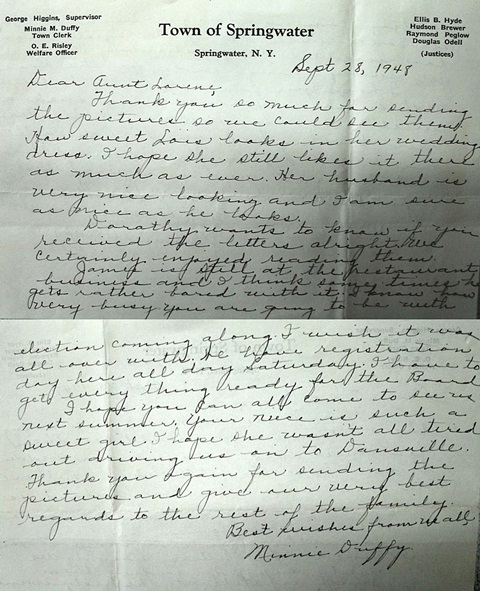 George Higgins, Supervisor
Minnie M. Duffy
Town Clerk
O. E. Risley
Welfare Officer
Town of Springwater
Springwater, N. Y.
Ellis B. Hyde
Hudson Brewer
Raymond Peglow
Douglas Odell
(Justices)
Sept 28, 1948
Dear Aunt Lorene,
Thank you so much for sending
the pictures so we could see them.
How sweet Lois looks in her wedding
dress. I hope she still likes it there
as much as ever. Her husband is
very nice looking and I am sure
as nice as he looks.
Dorathy wants to know if you
received the letters alright. We
certainly enjoyed reading them.
James is still at the restaurant
business and I think some times he
gets rather bored with it. I know how
very busy you are going to be with
election coming along. I wish it was
all over with. We have registration
day here all day Saturday. I have to
get every thing ready for the Board
I hope you can all come to see us
next summer. Your niece is such a
sweet girl. I hope she wasn't all tired
out driving us on to Dansville.
Thank you again for sending the
pictures and give our very best
regards to the rest of the family.
Best wishes from us all
Minnie Duffy.